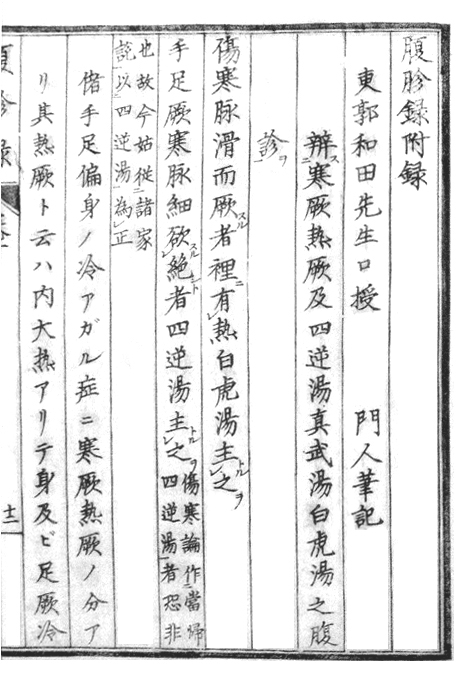 腹胗録附録
東郭和田先生口授 門人筆記
辨ス寒厥熱厥及四逆湯真武湯白虎湯之腹
診ヲ
傷寒脉滑而厥スル者裡ニ有レ熱白虎湯主トルレ之ヲ
手足厥寒脉細欲スルレ絶ント者四逆湯主トルレ之ヲ 傷寒論作ニ當帰
四逆湯一者恐非
也故今姑從ニ諸家
説一以ニ四逆湯一為レ正
偖手足偏身ノ冷アガル症ニ寒厥熱厥ノ分ア
リ其熱厥ト云ハ内大熱アリテ身及ビ足厥冷